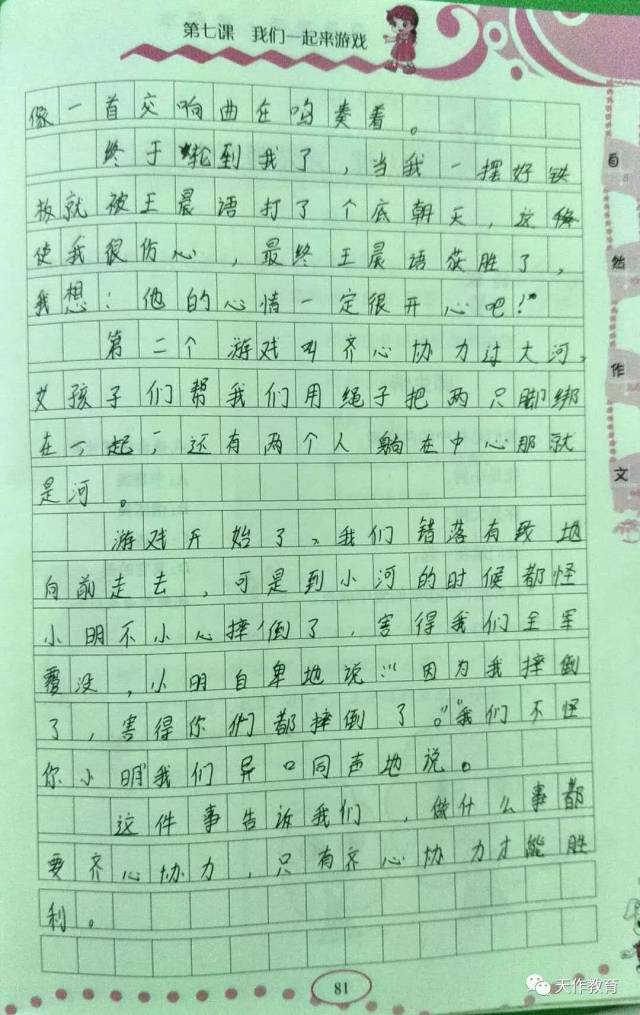 第七课 我们一起来游戏
像一首交响曲在鸣奏着。
终于轮到我了,当我一摆好铁
板就被王晨语打了个底朝天,这
使我很伤心,最终王晨语获胜了,
我想:他的心情一定很开心吧!”
第二个游戏叫齐心协力过大河。
女孩子们帮我们用绳子把两只脚绑
在一起,还有两个人躺在中心那就
是河。
游戏开始了。我们错落有致地
向前走去,可是到小河的时候都怪
小明不小心摔倒了,害得我们全军
覆没,小明自卑地说:“因为我摔倒
了,害得你们都摔倒了。”“我们不怪
你小明我们异口同声地说。
这件事告诉我们,做什么事都
要齐心协力,只有齐心协力才能胜
利。
自
始
作
文
81
天作教育